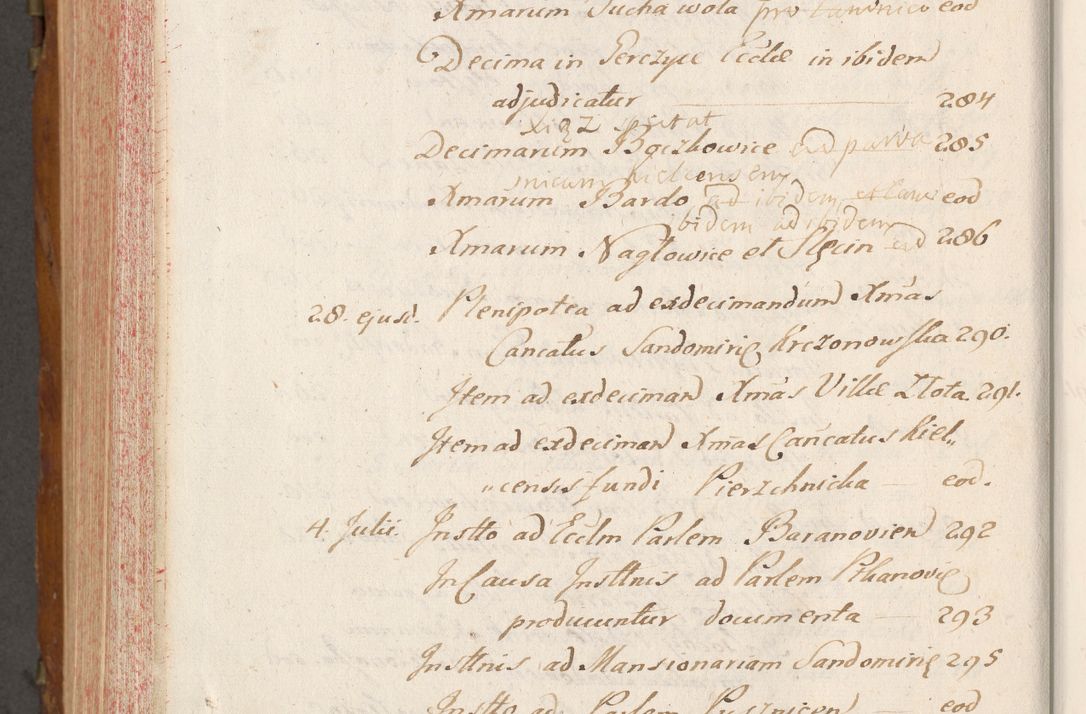 Xmarum Sucha wola pro eod
Decima in Perczyce Ecclæ in ibidem
adjudicatur 284
Xiąz
Decimarum Bączkowice ad parva 285
Xmarum Bardo ad ibidem eod
bidem ad ibidem
Xmarum Nagłowice et Slęcin ad 286
28. ejusd. Plenipotea ad exdecimandum Xmas
Cancatus Sandomirię Krczonowska 290.
Item ad exdeciman Xmas Villæ Zlota 291.
Item ad exdeciman Xmas Cancatus Kiel„
„censis fundi Pierzchnicka — eod.
4. Julii. Instto ad Ecclm Parlem Baranovien 292
In Causa Insttnis ad Parlem Pikanovię
producuntur documenta — 293
Insttnis ad Mansionariam Sandomirię 295
Instto ad Parlem eod